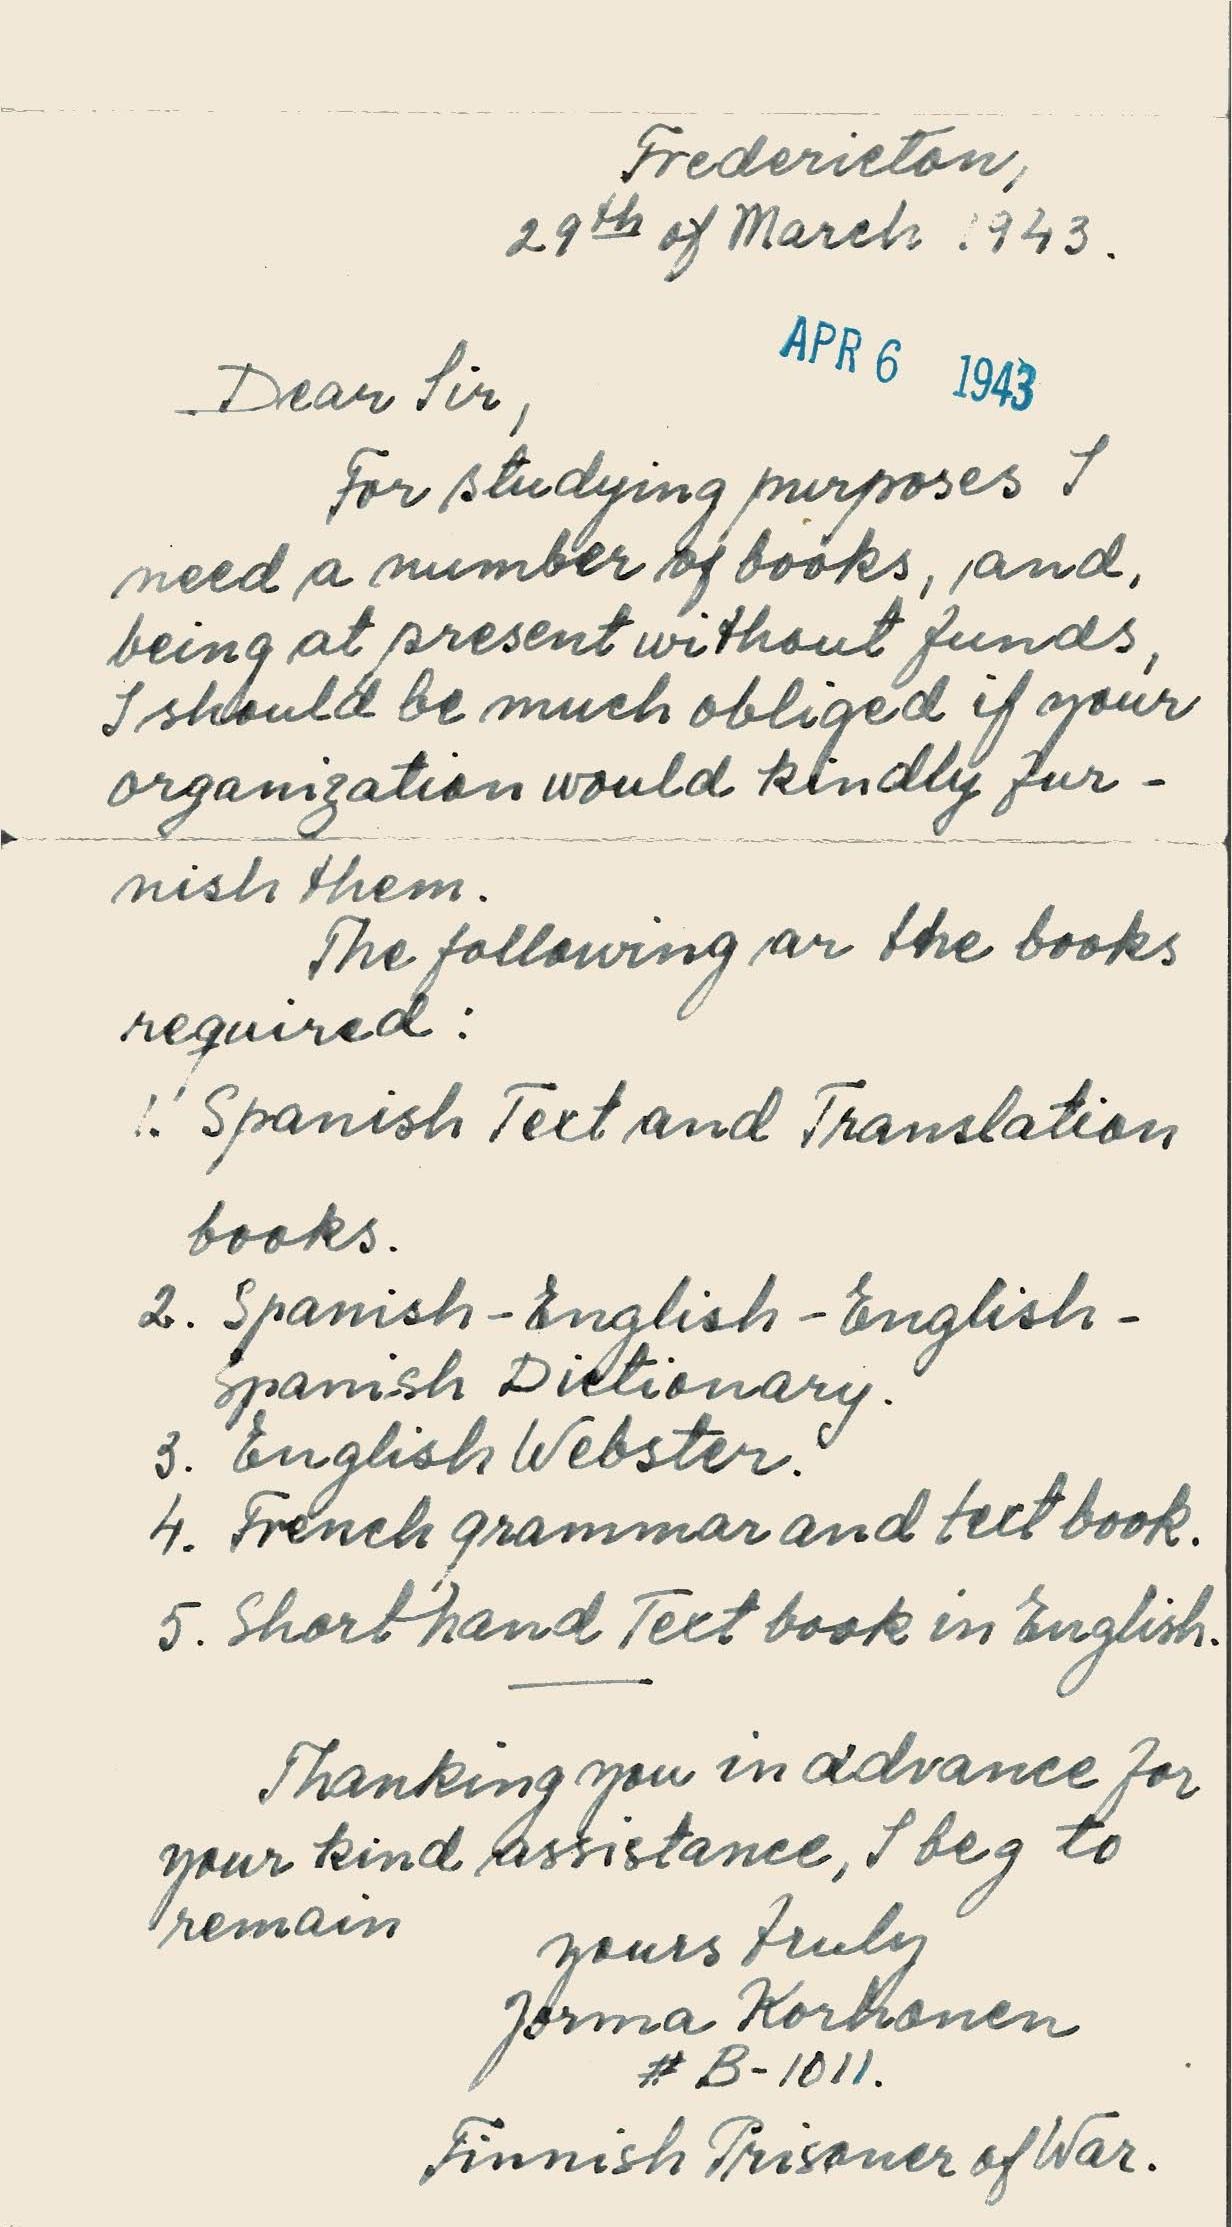 Fredericton,
29th of March 1943.
APR 6 1943
Dear Sir,
For studying purposes I
need a number of books, and,
being at present without funds,
I should be much obliged if your
organization would kindly fur-
nish them.
The following ar the books
required:
1. Spanish Text and Translation
books.
2. Spanish-English-English-
Spanish Dictionary.
3. English Webster.
4. French grammar and text book.
5. Shorthand Text book in English.
Thanking you in advance for
your kind assistance, I beg to
remain
yours truly
Jorma Korhonen
# B-1011.
Finnish Prisoner of War.